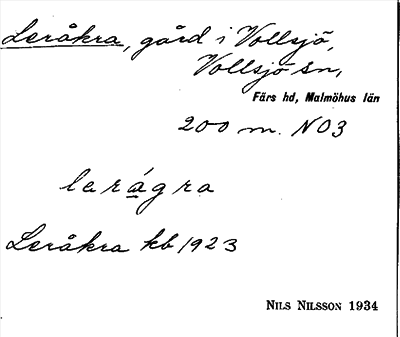 Leråkra, gård i Vollsjö,
Vollsjö sn,
Färs hd, Malmöhus län
200 m. NO3
lerágra
Leråkra kb 1923
NILS NILSSON 1934